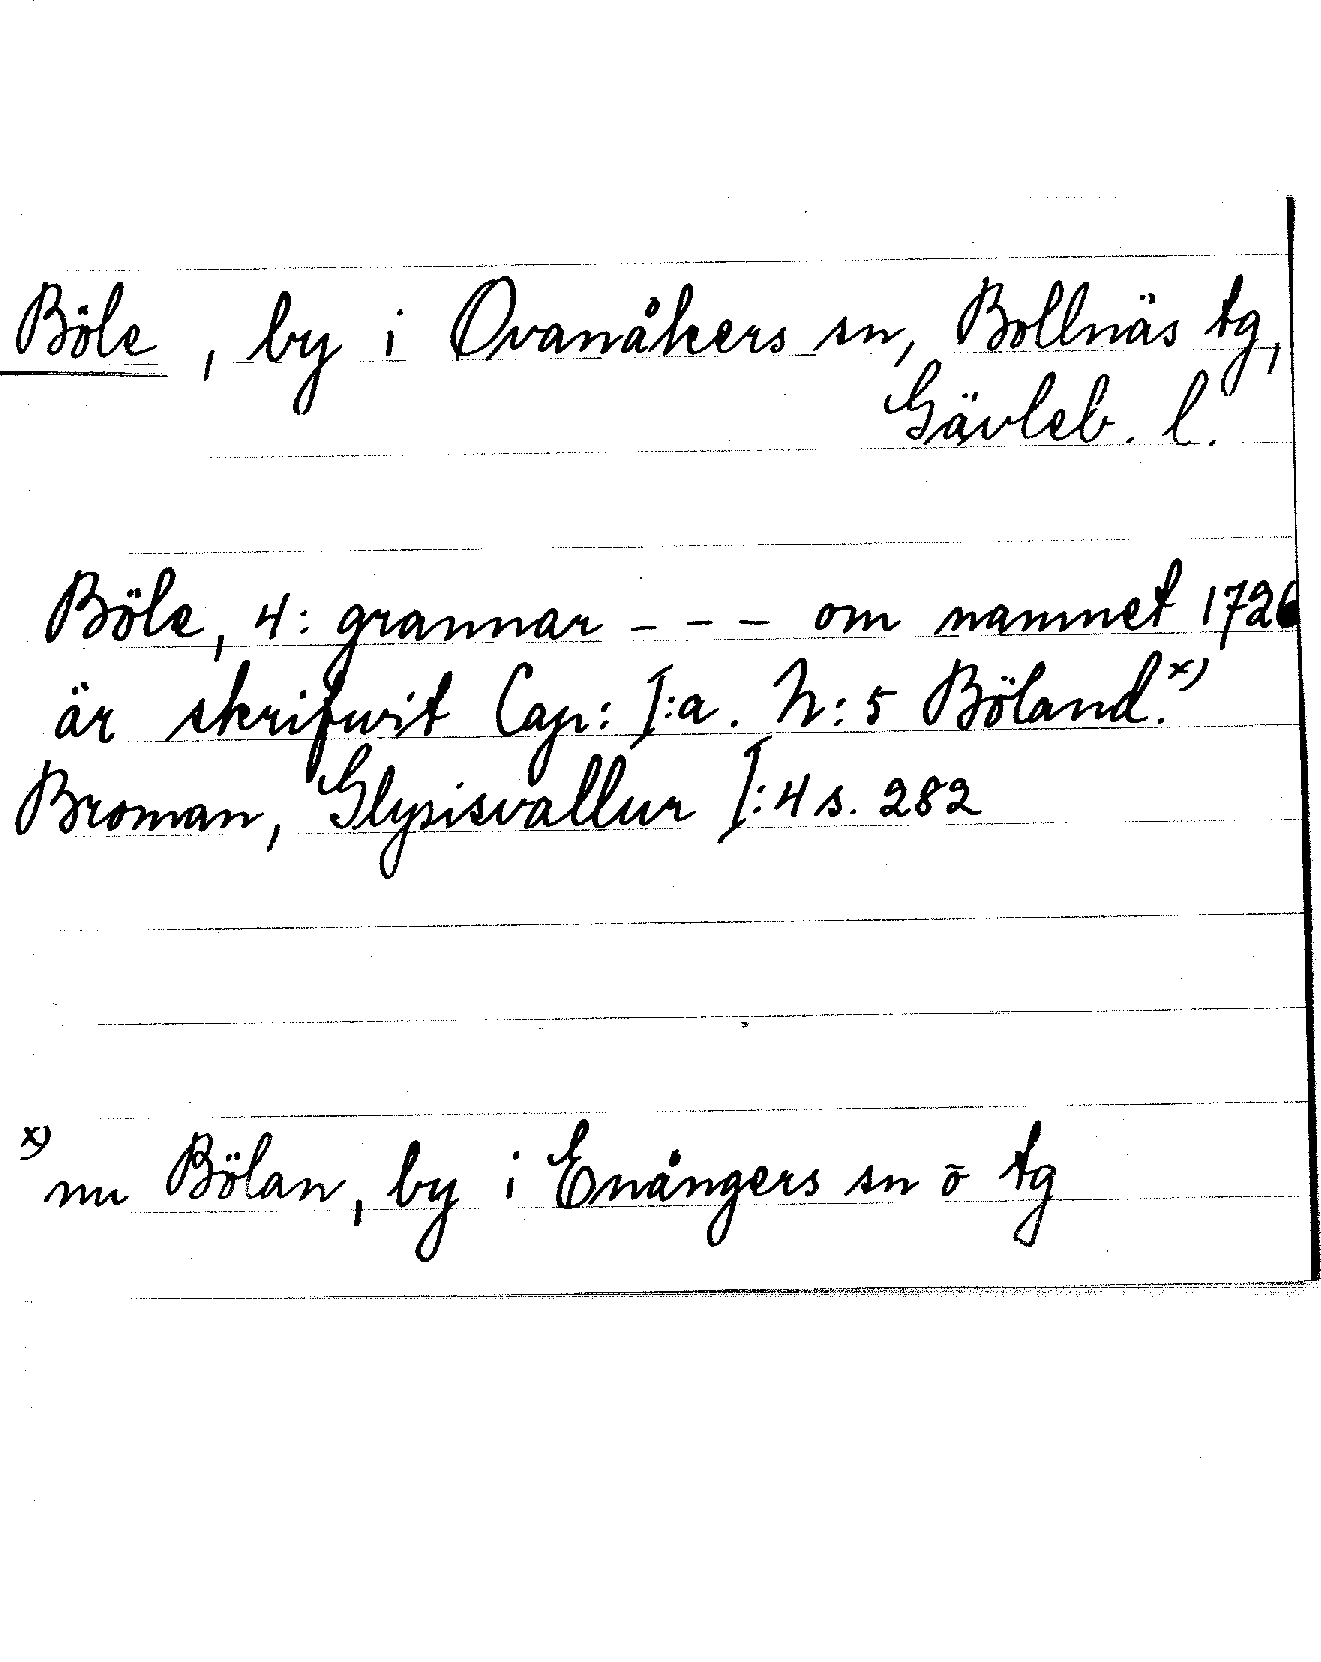 Böle, by i Ovanåkers sn, Bollnäs tg,
Gävleb. l.
Böle, 4: grannar - - - om namnet 1726
är skrifwit Cap: I:a. N:5 Böland.x)
Broman, Glysisvallur I:4 s. 282
x) nu Bölan, by i Enångers sn o tg